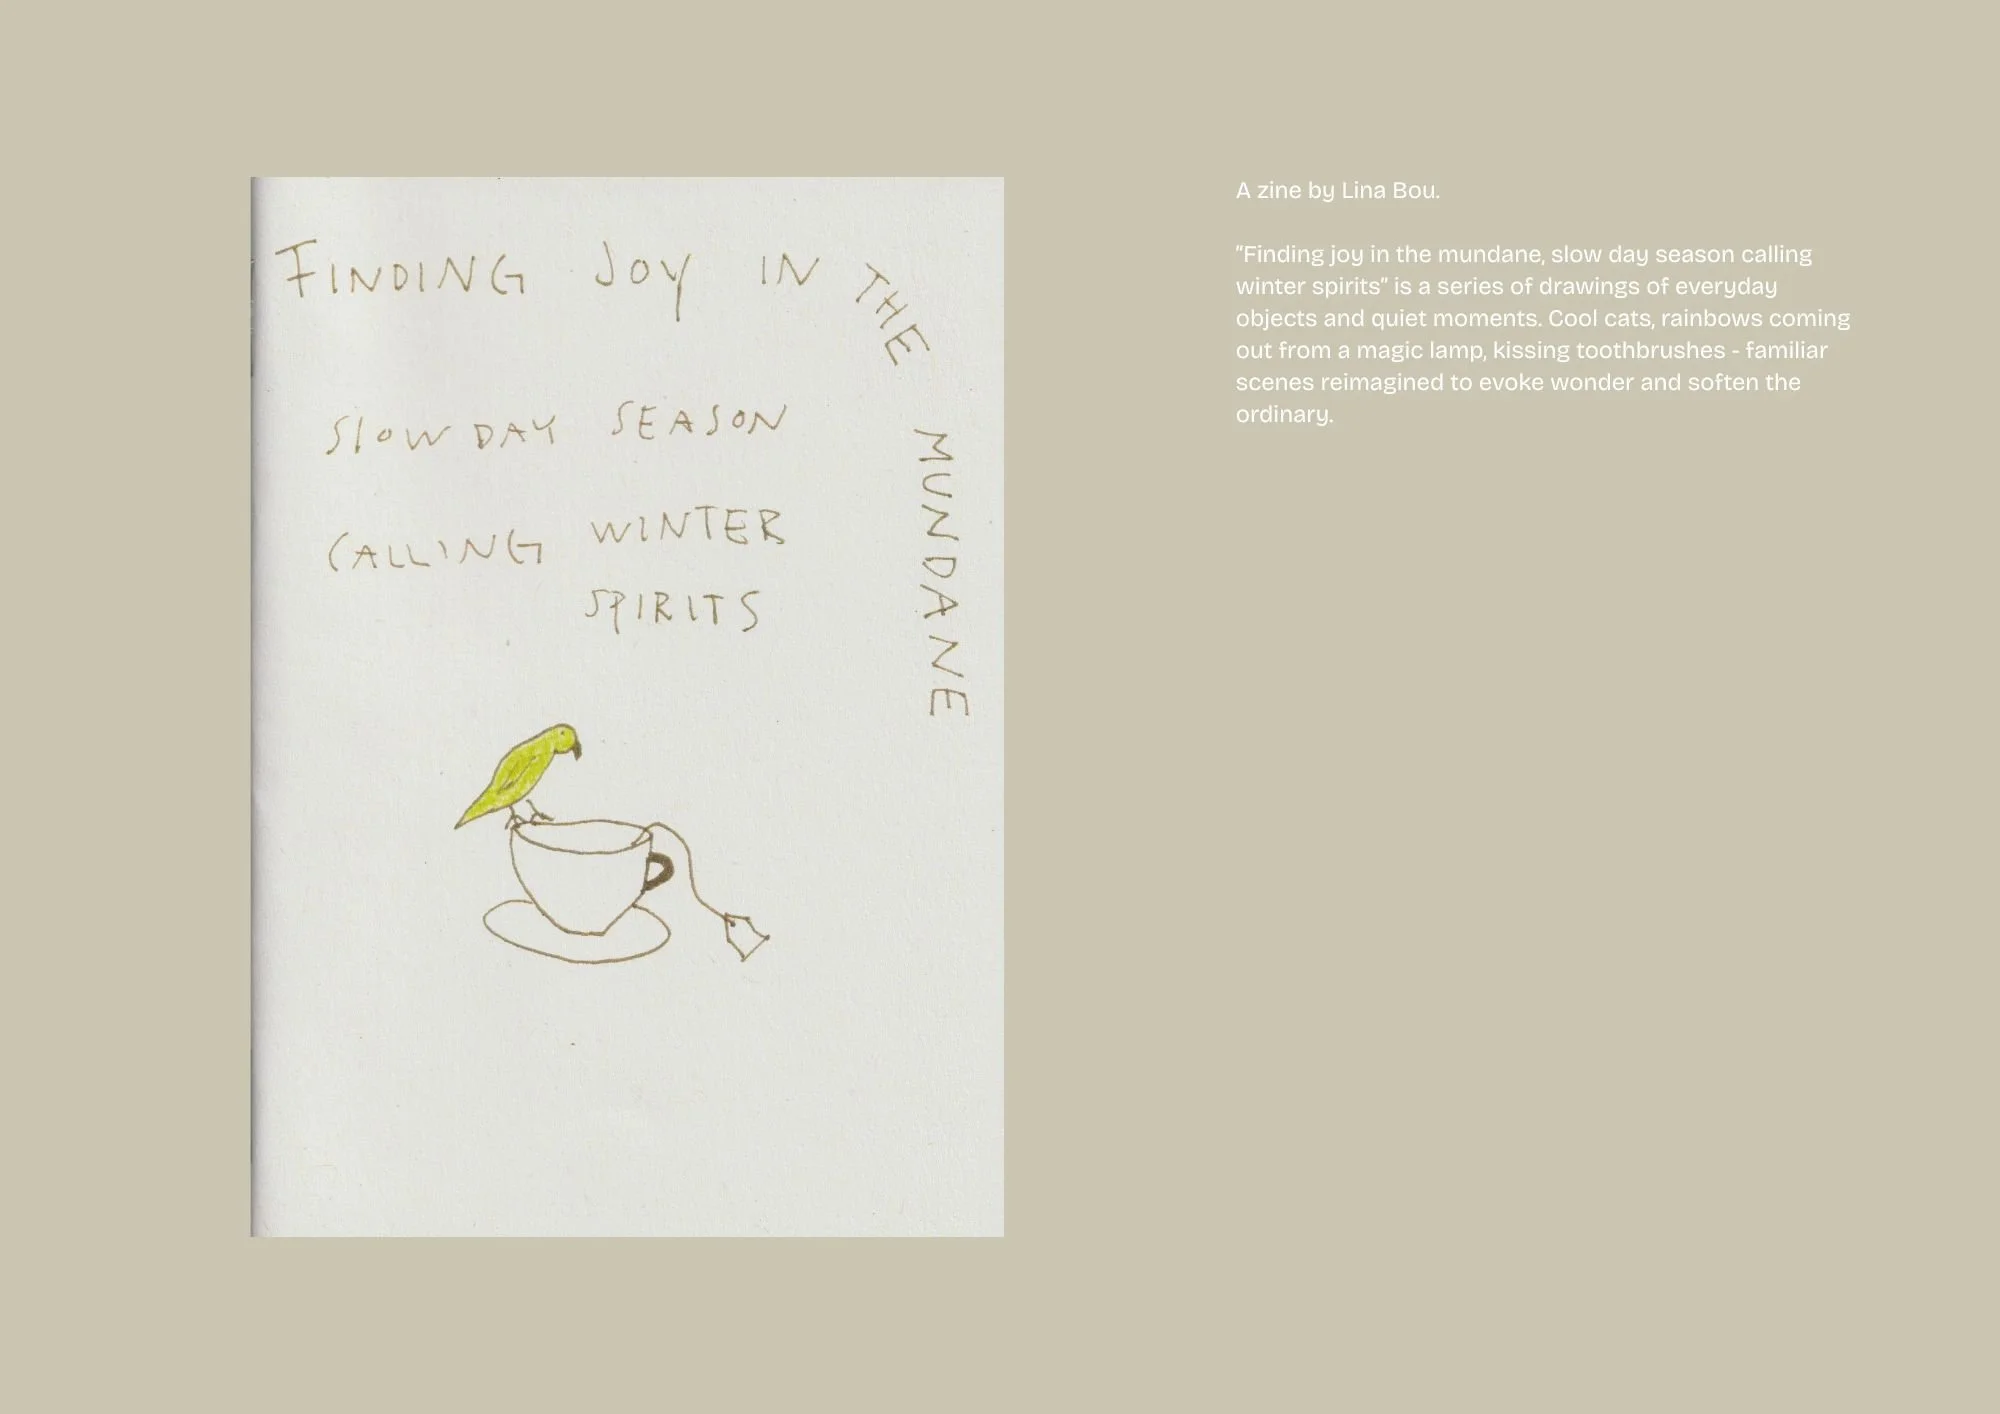 FINDING JOY IN THE MUNDANE
SLOW DAY SEASON
CALLING WINTER
SPIRITS
A zine by Lina Bou.
“Finding joy in the mundane, slow day season calling
winter spirits” is a series of drawings of everyday
objects and quiet moments. Cool cats, rainbows coming
out from a magic lamp, kissing toothbrushes - familiar
scenes reimagined to evoke wonder and soften the
ordinary.